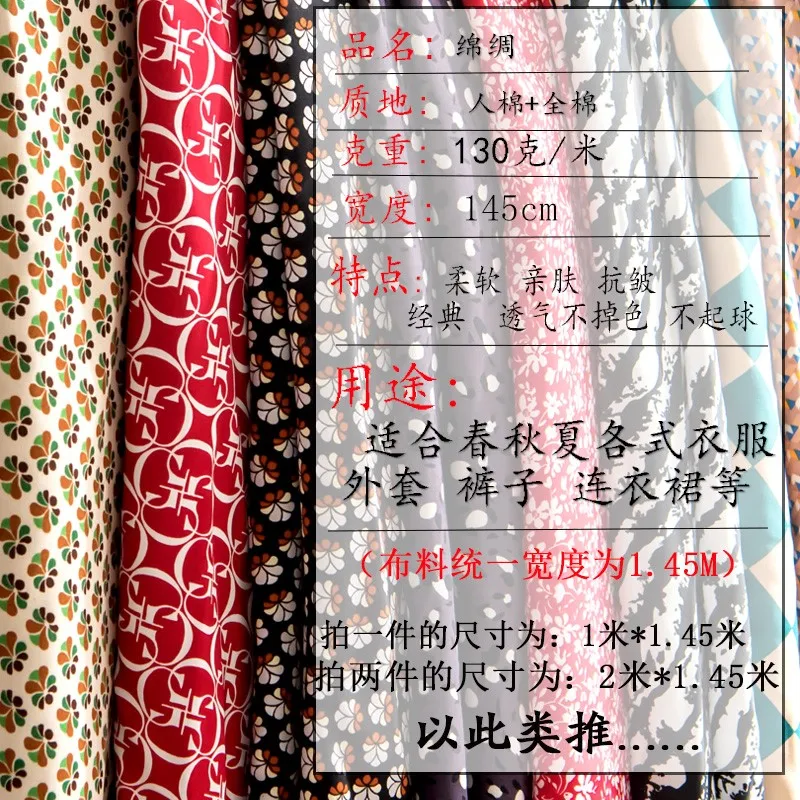 品名: 绵绸
质地: 人棉+全棉
克重: 130克/米
宽度: 145cm
特点: 柔软 亲肤 抗皱
经典 透气不掉色 不起球
用途:
适合春秋夏各式衣服
外套 裤子 连衣裙等
(布料统一宽度为1.45M)
拍一件的尺寸为: 1米*1.45米
拍两件的尺寸为: 2米*1.45米
以此类推......